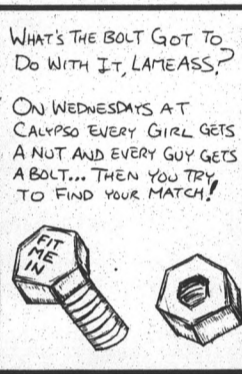 WHAT'S THE BOLT GOT TO
DO WITH IT, LAMEASS?
ON WEDNESDAYS AT
CALYPSO EVERY GIRL GETS
A NUT AND EVERY GUY GETS
A BOLT... THEN YOU TRY
TO FIND YOUR MATCH!
FIT
ME
IN